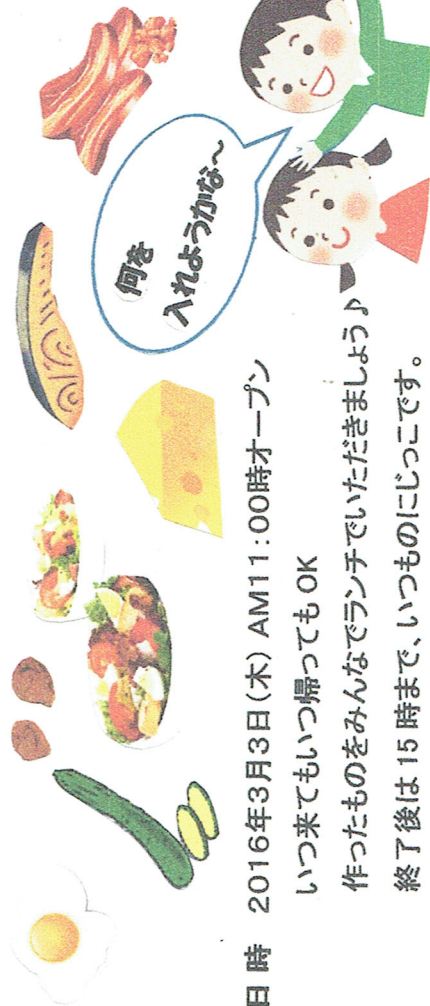 何を
入れようかな～
日 時　2016年3月3日(木) AM11:00時オープン
いつ来てもいつ帰っても OK
作ったものをみんなでランチでいただきましょう♪
終了後は 15 時まで、いつものにじっこです。